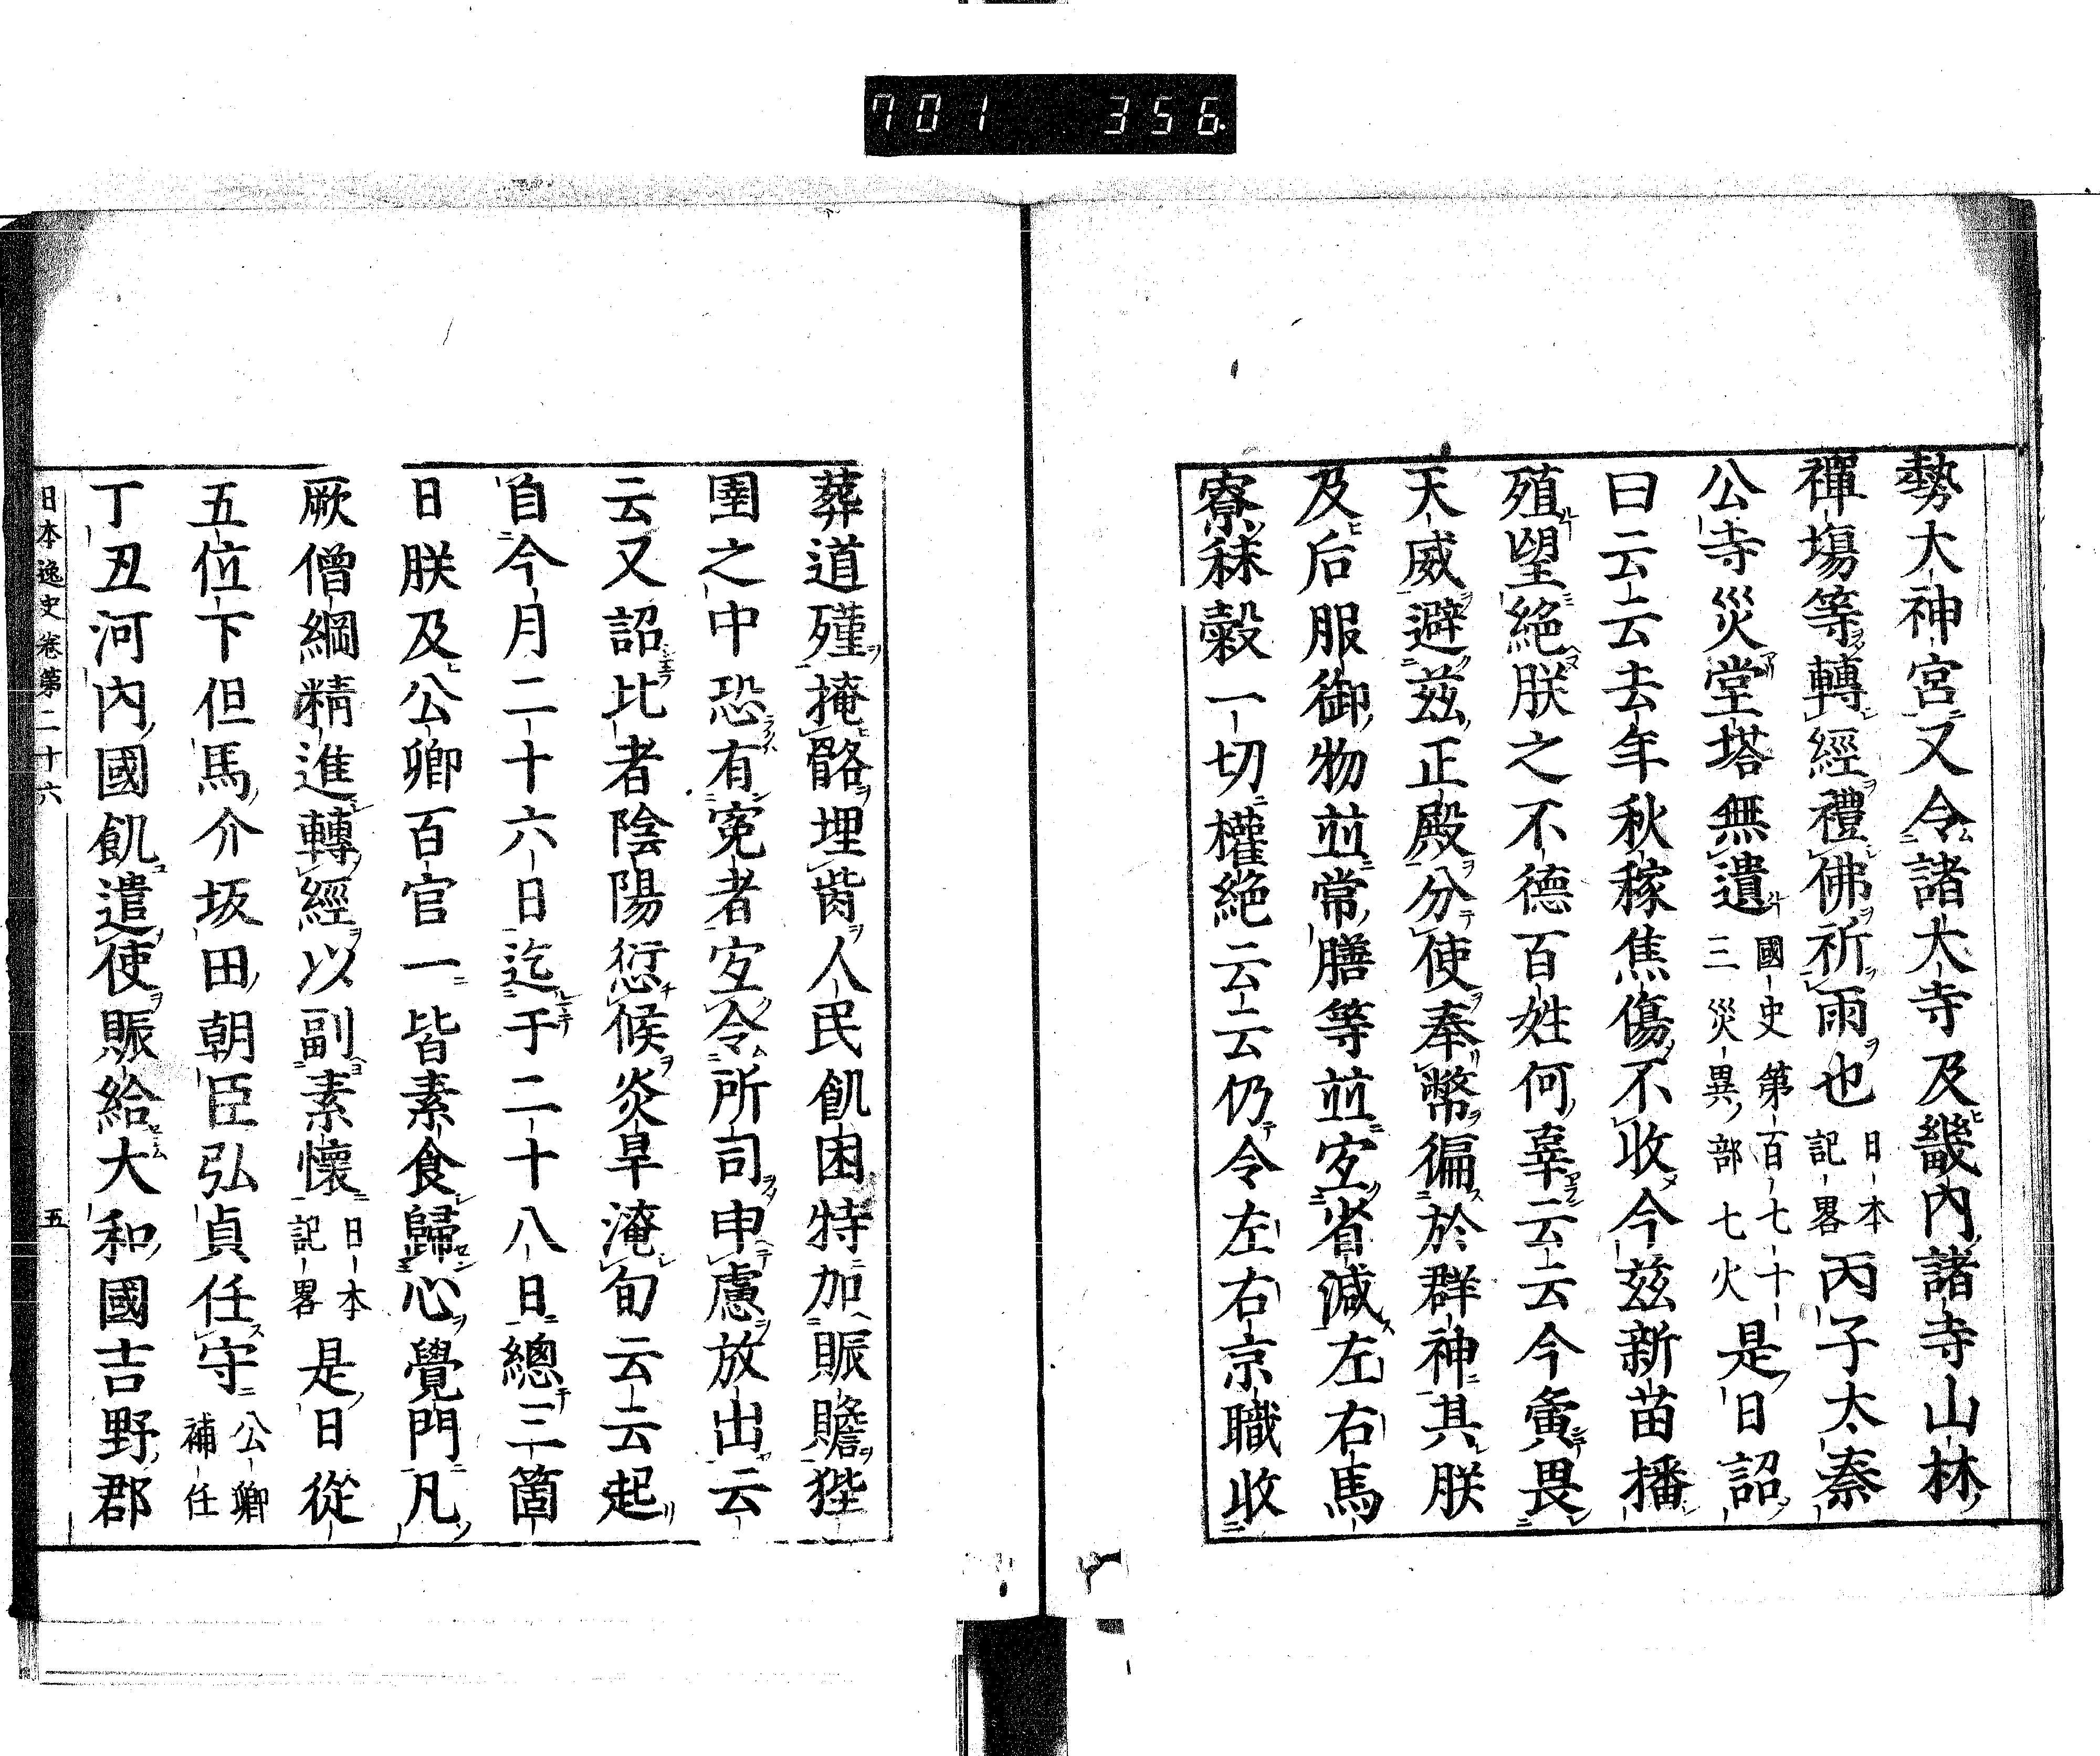 701 356
勢大神宮又令諸大寺及畿內諸寺山林
禪塲等轉經禮佛祈雨也日本記畧丙子太秦
公寺災堂塔無遺國史第百七十三災異部七火是日詔
曰云云去年秋稼焦傷不收今玆新苗播
殖望絕朕之不德百姓何辜云云今夤畏
天威避玆正殿分使奉幣徧於群神其朕
及后服御物並常膳等並宜省減左右馬
寮秣穀一切權絕云云仍令左右京職收
葬道殣掩骼埋胔人民飢困特加賑贍狴
圉之中恐有寃者宜令所司申慮放出云
云又詔比者陰陽愆候炎旱淹旬云云起
自今月二十六日迄于二十八日總三箇
日朕及公卿百官一皆素食歸心覺門凡
厥僧綱精進轉經以副素懷日本記畧是日從
五位下但馬介坂田朝臣弘貞任守公卿補任
丁丑河內國飢遣使賑給大和國吉野郡
日本逸史卷第二十六 五